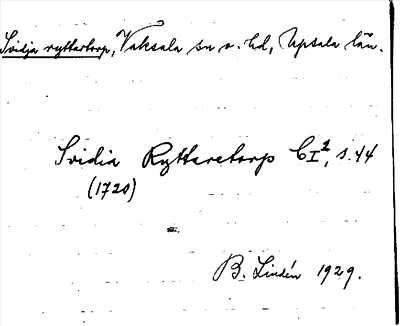 Svidja ryttartorp, Vaksala sn o. hd, Upsala län.
Svidia Ryttaretorp CI², s. 44
(1720)
B. Lindén 1929.